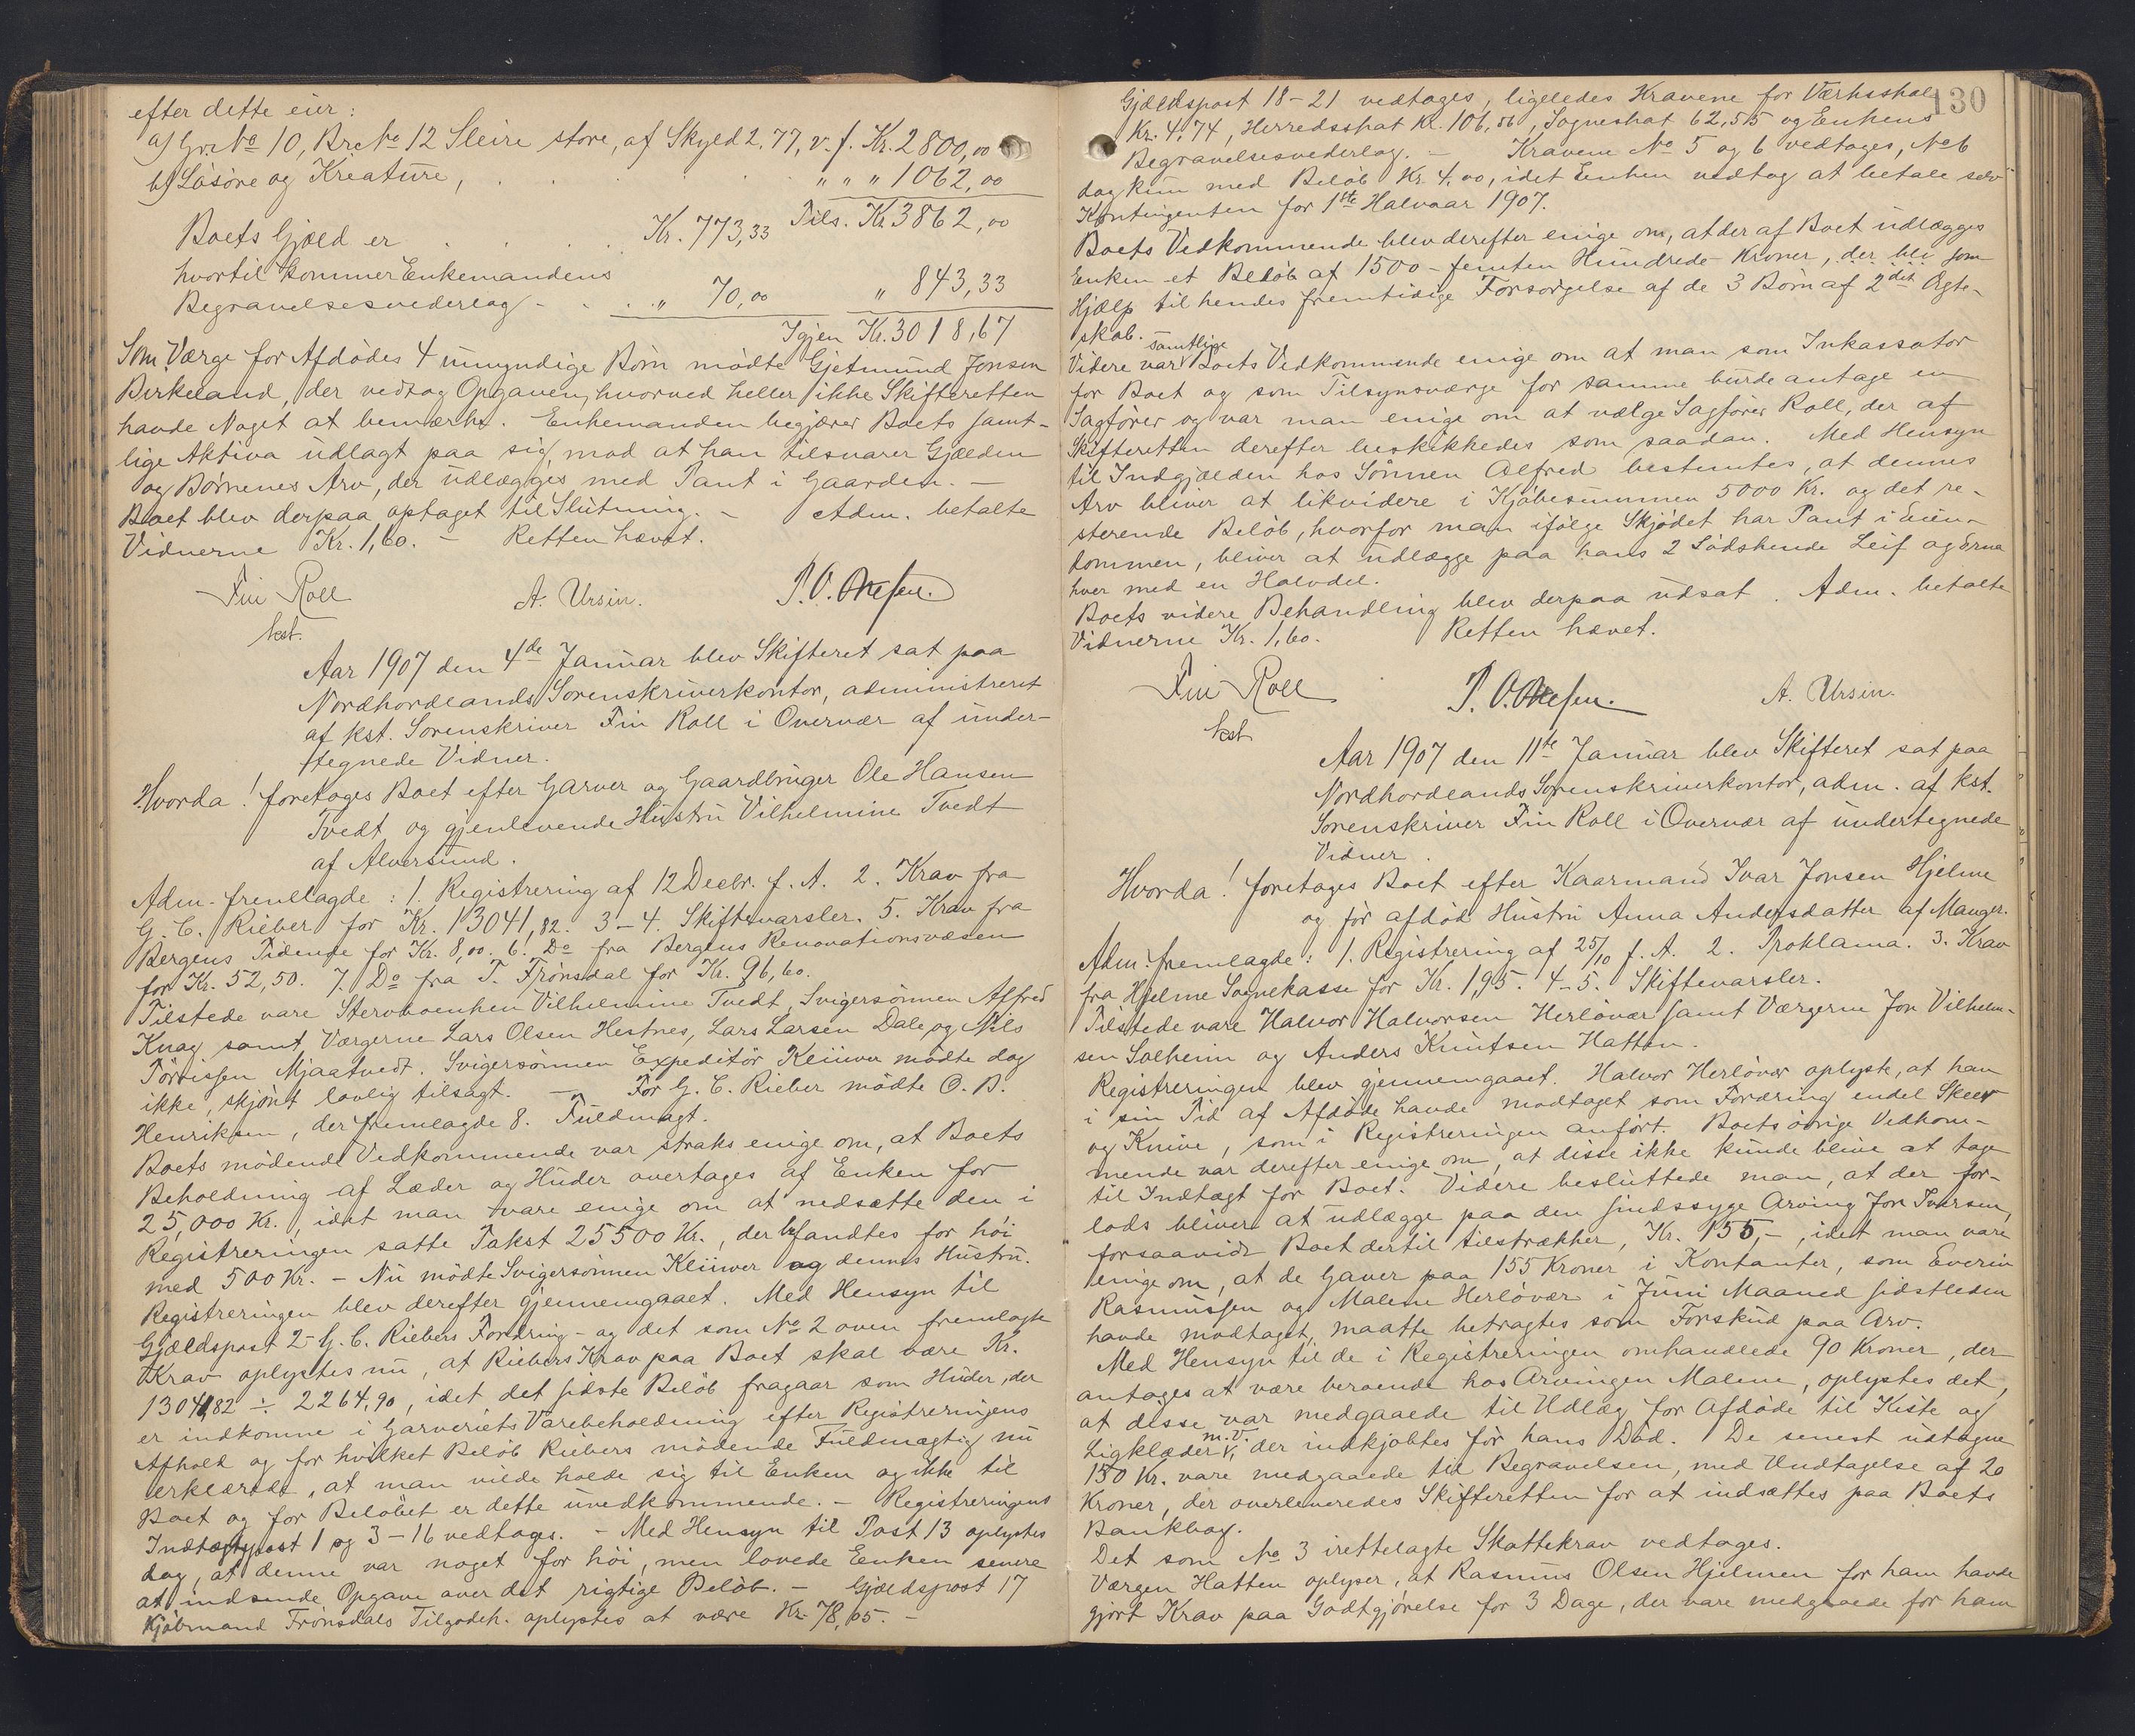 efter dette eier:
a) Gr. No 10, Br. No 12 Sleire store, af Skyld 2,77, v. f. Kr. 2800,00
b) Løsøre og Kreature, . . . . . „ „ „ 1062,00
Tils. Kr. 3862,00
Boets Gjæld er . . . . Kr. 773,33
hvortil kommer Enkemandens
Begravelsesvederlag - . . . „ 70,00 „ 843,33
Igjen Kr. 3018,67
Som Værge for Afdødes 4 umyndige Børn mødte Gjetmund Jonsen
Birkeland, der vedtog Opgaven, hvorved heller ikke Skifteretten
havde Noget at bemærke. Enkemanden begjærer Boets samt-
lige Aktiva udlagt paa sig, mod at han tilsvarer Gjælden
og Børnenes Arv, der udlægges med Pant i Gaarden. -
Boet blev derpaa optaget til Slutning. - Adm. betalte
Vidnerne Kr. 1,60. - Retten hævet.
Fin Roll A. Ursin. P. O.
kst.
Aar 1907 den 4de Januar blev Skifteret sat paa
Nordhordlands Sorenskriverkontor, administreret
af kst. Sorenskriver Fin Roll i Overvær af under-
tegnede Vidner.
Hvorda! foretoges Boet efter Garver og Gaardbruger Ole Hansen
Tvedt og gjenlevende Hustru Vilhelmine Tvedt
af Alversund.
Adm. fremlagde: 1. Registrering af 12 Decbr. f. A. 2. Krav fra
G. C. Rieber for Kr. 13041,82. 3-4. Skiftevarsler. 5. Krav fra
Bergens Tidende for Kr. 8,00. 6. Do fra Bergens Renovationsvæsen
for Kr. 52,50. 7. Do fra T. Frönsdal for Kr. 96,60.
Tilstede vare Stervboenken Vilhelmine Tvedt, Svigersönnen Alfred
Knag samt Værgerne Lars Olsen Hestnes, Lars Larsen Dale og Nils
Torrissen Mjaatvedt. Svigersönnen Expeditör Klüwer mødte dog
ikke, skjönt lovlig tilsagt. - For G. C. Rieber mødte O. B.
Henriksen, der fremlagde 8. Fuldmagt.
Boets mødende Vedkommende var straks enige om, at Boets
Beholdning af Læder og Huder overtages af Enken for
25,000 Kr., idet man vare enige om at nedsætte den i
Registreringen satte Takst 25500 Kr., der befandtes for höi
med 500 Kr. - Nu mødte Svigersönnen Klüwer og dennes Hustru.
Registreringen blev derefter gjennemgaaet. Med Hensyn til
Gjældspost 2 - G. C. Riebers Fordring - og det som No 2 oven fremlagte
Krav oplystes nu, at Riebers Krav paa Boet skal være Kr.
13041,82 ÷ 2264,90, idet det sidste Beløb fragaar som Huder, der
er indkomne i Garveriets Varebeholdning efter Registreringens
Afhold og for hvilket Beløb Riebers mødende Fuldmægtig nu
erklærede, at man vilde holde sig til Enken og ikke til
Boet og for Beløbet er dette uvedkommende. - Registreringens
Indtægtspost 1 og 3-16 vedtoges. - Med Hensyn til Post 13 oplystes
dog, at denne var noget for höi, men lovede Enken senere
at indsende Opgave over det rigtige Beløb. - Gjældspost 17
Kjøbmand Frönsdals Tilgodeh. oplystes at være Kr. 78,65. -
130
Gjældspost 18-21 vedtoges, ligeledes Kravene for Værksskat
Kr. 4,74, Herredsskat Kr. 106,56, Sogneskat 62,515 og Enkens
Begravelsesvederlag. - Kravene No 5 og 6 vedtoges, No 6
dog kun med Beløb Kr. 4,00, idet Enken vedtog at betale selv
Kontingenten for 1ste Halvaar 1907.
Boets Vedkommende blev derefter enige om, at der af Boet udlægges
Enken et Beløb af 1500 - femten Hundrede - Kroner, der bli som
Hjælp til hendes fremtidige Forsørgelse af de 3 Børn af 2det Ægte-
skab.
Videre var samtlige Boets Vedkommende enige om at man som Inkassator
for Boet og som Tilsynsværge for samme burde antage en
Sagfører og var man enige om at vælge Sagfører Roll, der af
Skifteretten derefter beskikkedes som saadan. Med Hensyn
til Indgjælden hos Sönnen Alfred bestemtes, at dennes
Arv bliver at likvidere i Kjøbesummen 5000 Kr. og det re-
sterende Beløb, hvorfor man ifølge Skjødet har Pant i Eien-
dommen, bliver at udlægge paa hans 2 Sødskende Leif og Erna
hver med en Halvdel.
Boets videre Behandling blev derpaa udsat. Adm. betalte
Vidnerne Kr. 1,60. Retten hævet.
Fin Roll P. O. A. Ursin.
kst
Aar 1907 den 11te Januar blev Skifteret sat paa
Nordhordlands Sorenskriverkontor, adm. af kst.
Sorenskriver Fin Roll i Overvær af undertegnede
Vidner.
Hvorda! foretoges Boet efter Kaarmand Ivar Jonsen Hjelme
og før afdöd Hustru Anna Andersdatter af Manger.
Adm. fremlagde: 1. Registrering af 25/10 f. A. 2. Proklama. 3. Krav
fra Hjelme Sognekasse for Kr. 1,95. 4-5. Skiftevarsler.
Tilstede vare Halvor Halvorsen Herløvær samt Værgerne Jon Vilhelm-
sen Solheim og Anders Knutsen Hatten.
Registreringen blev gjennemgaaet. Halvor Herløvær oplyste, at han
i sin Tid af Afdøde havde modtaget som Fordring endel Skeer
og Knive, som i Registreringen anført. Boets øvrige Vedkom-
mende var derefter enige om, at disse ikke kunde blive at tage
til Indtægt for Boet. Videre besluttede man, at der for-
lods bliver at udlægge paa den sindssyge Arving Jon Ivarsen,
forsaavidt Boet dertil tilstrækker, Kr. 155,-, idet man vare
enige om, at de Gaver paa 155 Kroner i Kontanter, som Everin
Rasmussen og Malene Herløvær i Juni Maaned sidstleden
havde modtaget, maatte betragtes som Forskud paa Arv.
Med Hensyn til de i Registreringen omhandlede 90 Kroner, der
antoges at være beroende hos Arvingen Malene, oplystes det,
at disse var medgaaede til Udlæg for Afdøde til Kiste og
Ligklæder m. v., der indkjøbtes før hans Død. De senest udtagne
130 Kr. vare medgaaede til Begravelsen, med Undtagelse af 20
Kroner, der overleveredes Skifteretten for at indsættes paa Boets
Bankbog.
Det som No 3 irettelagte Skattekrav vedtoges.
Værgen Hatten oplyser, at Rasmus Olsen Hjelmen for ham havde
gjort Krav paa Godtgjørelse for 3 Dage, der vare medgaaede for ham